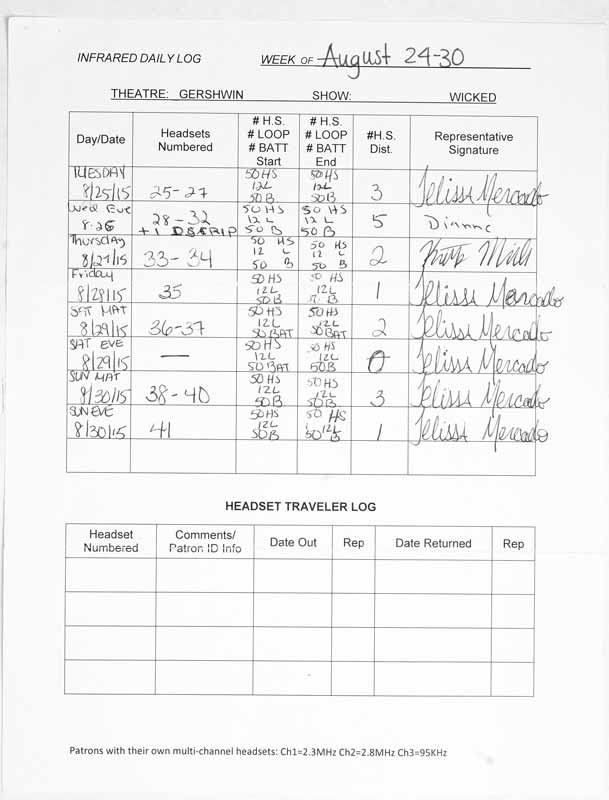 INFRARED DAILY LOG WEEK OF August 24-30
THEATRE: GERSHWIN SHOW: WICKED
Day/Date Headsets Numbered # H.S. # LOOP # BATT Start # H.S. # LOOP # BATT End #H.S. Dist. Representative Signature
TUESDAY 8/25/15 25-27 50 HS 12L 50B 50 HS 12L 50B 3 Jelissa Mercado
Wed Eve 8.26 28-32 +1 DSCRIP 50 HS 12 L 50 B 50 HS 12 L 50 B 5 Dianne
Thursday 8/27/15 33-34 50 HS 12 L 50 B 50 HS 12 L 50 B 2
Friday 8/28/15 35 50 HS 12L 50B 50 HS 12L B 1 Jelissa Mercado
SAT MAT 8/29/15 36-37 50HS 12L 50BAT 50HS 12L 50BAT 2 Jelissa Mercado
SAT EVE 8/29/15 — 50HS 12L 50BAT 50 HS 12L 50BAT 0 Jelissa Mercado
SUN MAT 8/30/15 38-40 50 HS 12L 50B 50HS 12L 50B 3 Jelissa Mercado
SUN EVE 8/30/15 41 50HS 12L 50B 50 HS 12L 50B 1 Jelissa Mercado
HEADSET TRAVELER LOG
Headset Numbered Comments/ Patron ID Info Date Out Rep Date Returned Rep
Patrons with their own multi-channel headsets: Ch1=2.3MHz Ch2=2.8MHz Ch3=95KHz